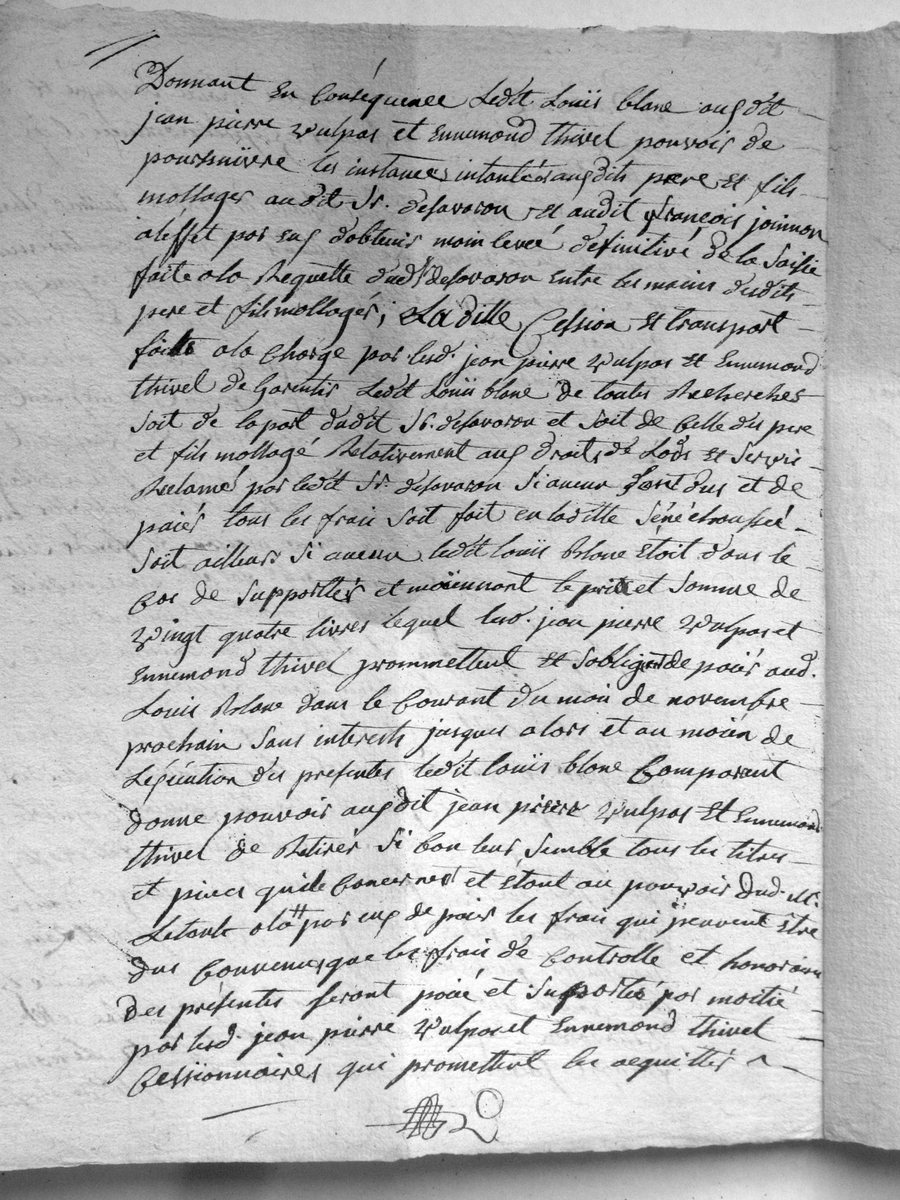 Donnant En Conséquence Ledit Louïs blanc aux dit
jean pierre Vulpas et Ennemond thivel pouvoir de
poursuivre les instances intentées auxdits pere Et fils
mollages audit Sr. desavaron Et audit françois joinnon
aleffet par Eux d'obtenir main levée définitivé de la Saisie
faite ala Requette dud. Sr. desavaron Entre les mains desdits
pere et fils mollages; La ditte Cession Et transport
faits ala Charge par lesd. jean pierre Vulpas Et Ennemond
thivel de Garentir Ledit Louïs blanc de toutes Recherches
Soit de la part dudit Sr. desavaron et Soit de Celle des pere
et fils mollagé Relativement aux droits de Lods Et Servis
Reclamé par ledit Sr. desavaron Si aucun Sont dus et de
paiér tous les frais Soit fait en laditte Sénéchaussée
Soit ailleurs Si aucun ledit Louïs Blanc Etoit dans le
Cas de Supporter et moïennant le prix et Somme de
Vingt quatre livres lequel lesd. jean pierre Vulpas et
Ennemond thivel prommettent Et Sobligent de paiér aud.
Louïs Blanc dans le Courant du mois de novembre
prochain Sans interests jusques alors et au moién de
Lexécution des presentes ledit Louïs blanc Comparant
donne pouvoir auxdit jean pierre Vulpas Et Ennemond
thivel de Retirér Si bon leur Semble tous les titres
et pieces qui le Concernes et Etant au pouvoir Dud. Me.
Letank ala par eux de paiér les frais qui peuvent Etre
dus Convenus que les frais de Controlle et honoraires
Des présentes Seront paié et Supporté par moitié
par lesd. jean pierre Vulpas et Ennemond thivel
Cessionnaires qui promettent les acquitter